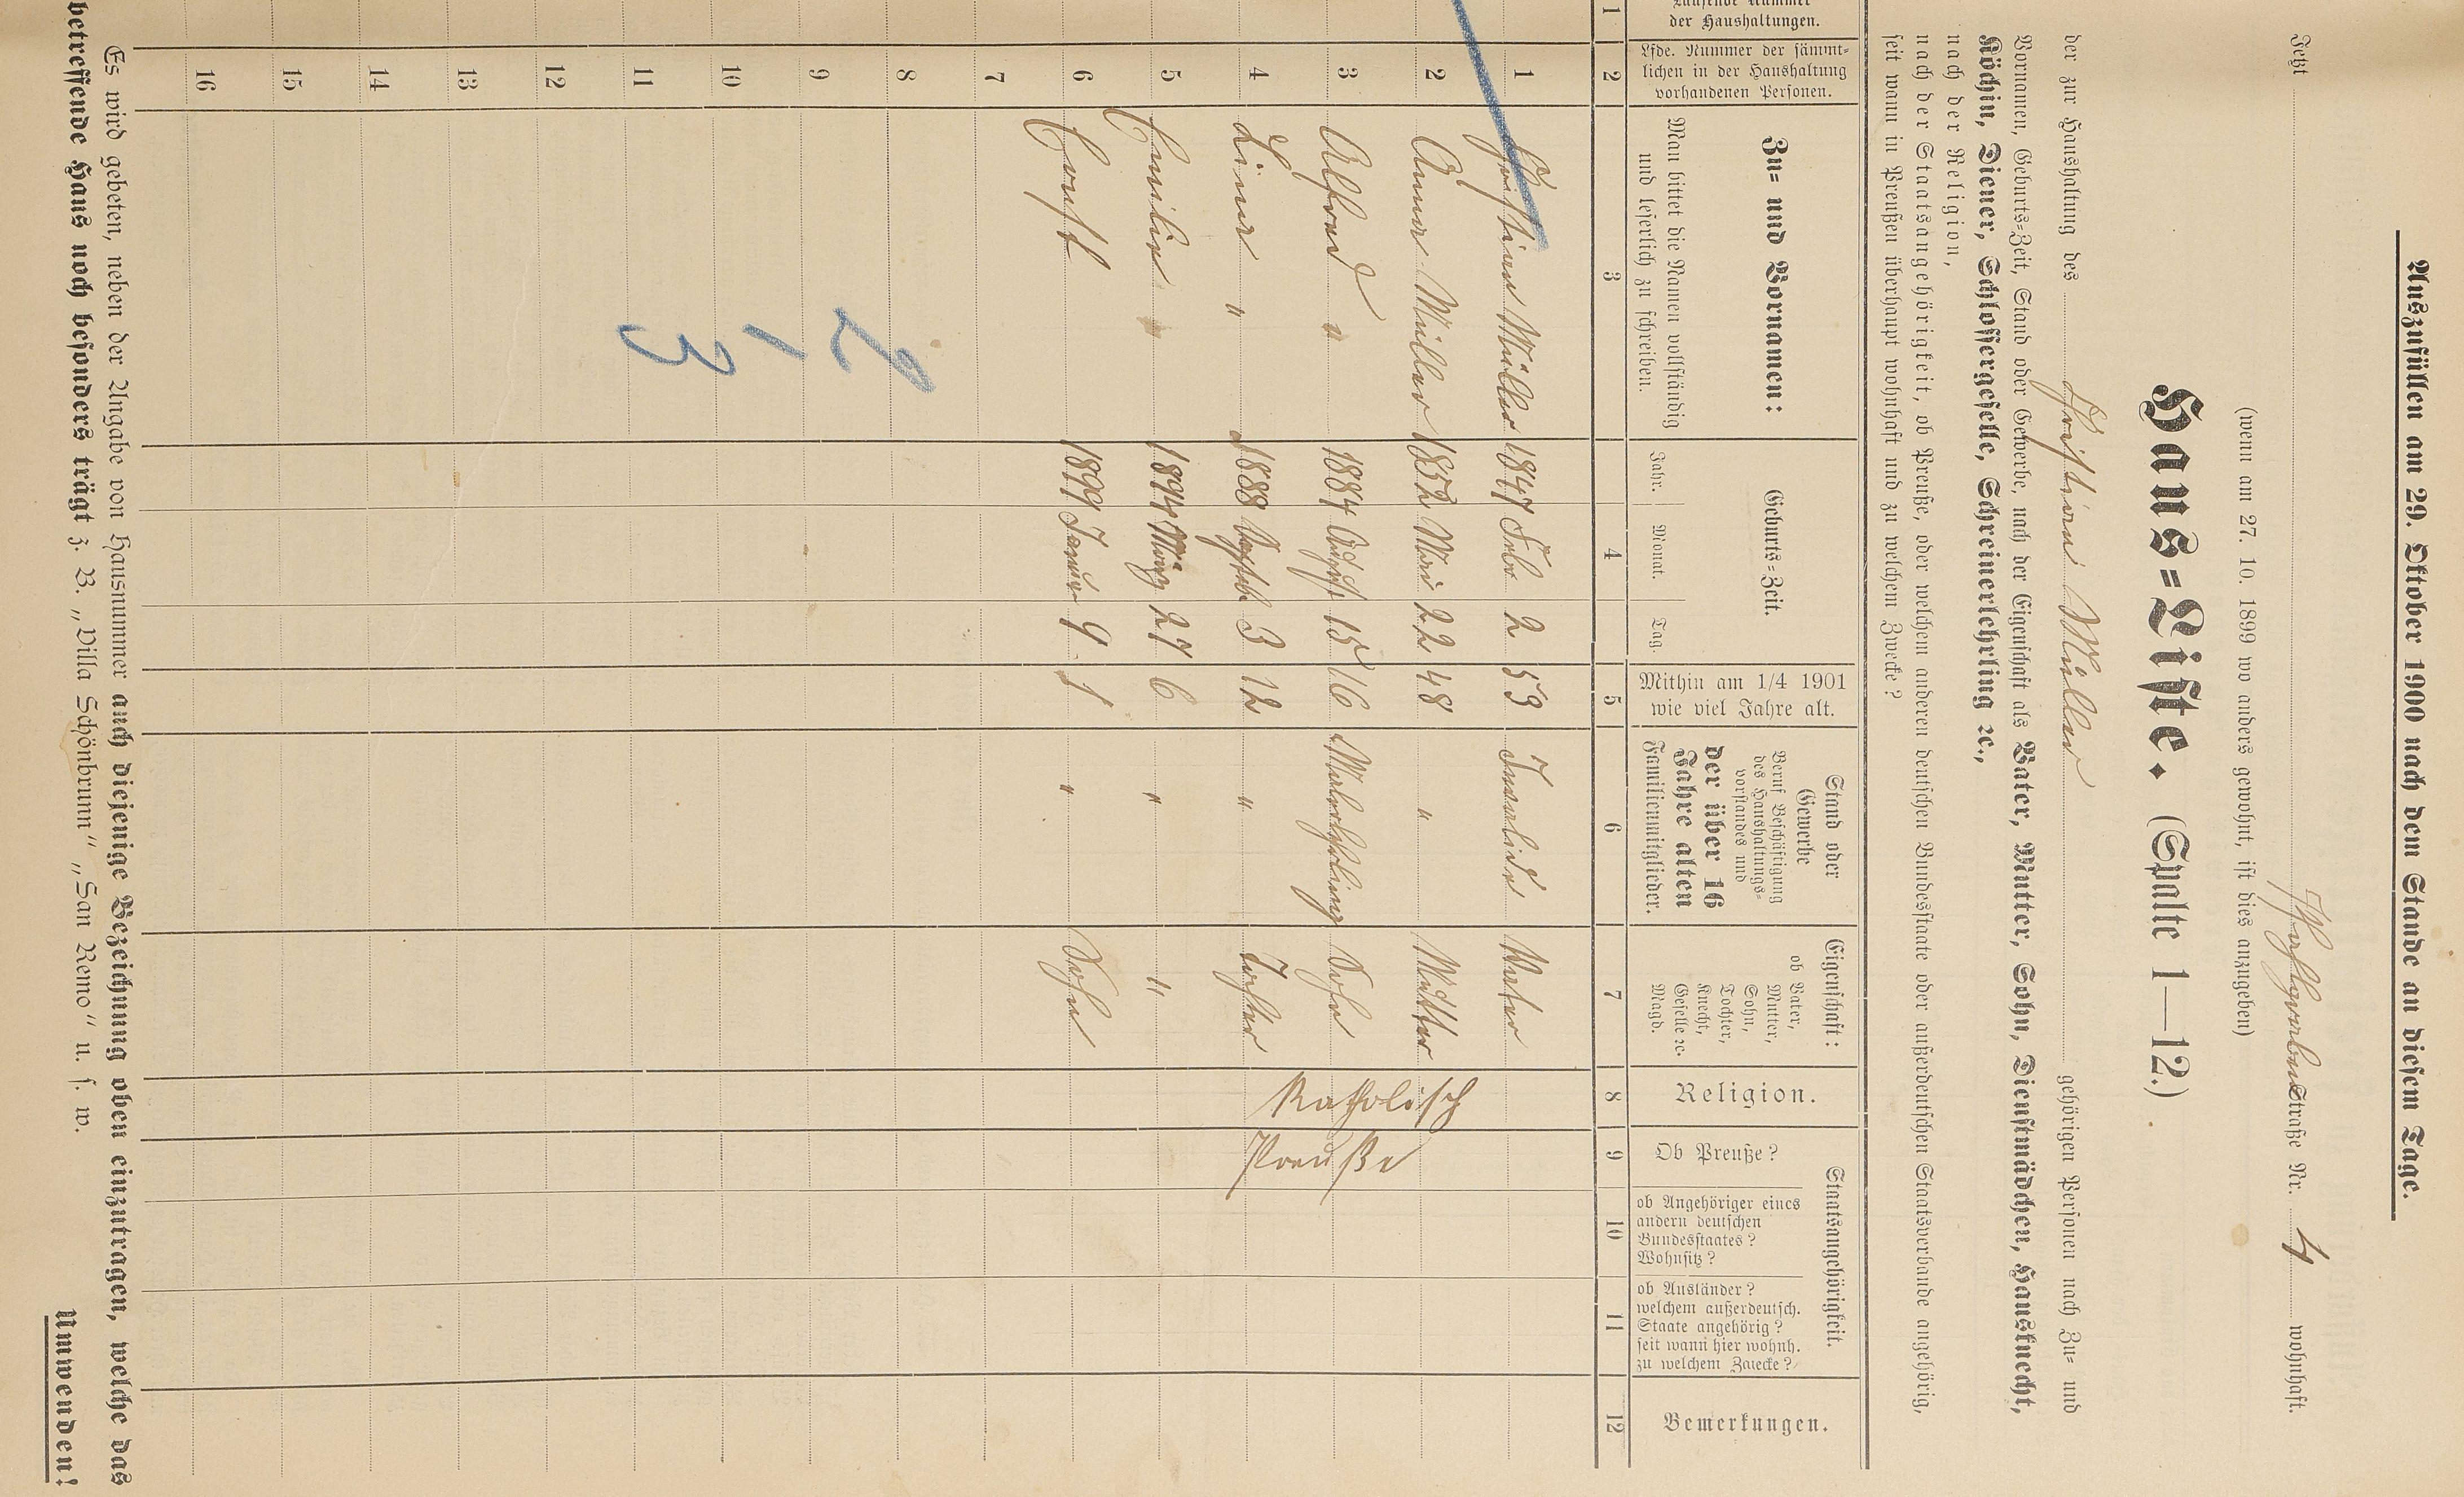 Auszufüllen am 29. Oktober 1900 nach dem Stande an diesem Tage.
Jetzt Straße Nr. 4 wohnhaft.
(wenn am 27. 10. 1899 wo anders gewohnt, ist dies anzugeben)
Haus=Liste. (Spalte 1—12.)
der zur Haushaltung des Christian Müller gehörigen Personen nach Zu= und
Vornamen, Geburts=Zeit, Stand oder Gewerbe, nach der Eigenschaft als Vater, Mutter, Sohn, Dienstmädchen, Hausknecht,
Köchin, Diener, Schlossergeselle, Schreinerlehrling ꝛc.,
nach der Religion,
nach der Staatsangehörigkeit, ob Preuße, oder welchem anderen deutschen Bundesstaate oder außerdeutschen Staatsverbande angehörig,
seit wann in Preußen überhaupt wohnhaft und zu welchem Zwecke?
Laufende Nummer
der Haushaltungen.
Lfde. Nummer der sämmt=
lichen in der Haushaltung
vorhandenen Personen.
Zu= und Vornamen:
Man bittet die Namen vollständig
und leserlich zu schreiben.
Geburts=Zeit.
Jahr. Monat. Tag.
Mithin am 1/4 1901
wie viel Jahre alt.
Stand oder
Gewerbe
Beruf Beschäftigung
des Haushaltungs=
vorstandes und
der über 16
Jahre alten
Familienmitglieder.
Eigenschaft:
ob Vater,
Mutter,
Sohn,
Tochter,
Knecht,
Geselle ꝛc.
Magd.
Religion.
Staatsangehörigkeit.
Ob Preuße?
ob Angehöriger eines
andern deutschen
Bundesstaates?
Wohnsitz?
ob Ausländer?
welchem außerdeutsch.
Staate angehörig?
seit wann hier wohnh.
zu welchem Zwecke?
Bemerkungen.
1 2 3 4 5 6 7 8 9 10 11 12
1 Christian Müller 1847 Febr 2 53 Invalide Vater
2 Anna Müller 1852 Mai 22 48 " Mutter
3 Alfred " 1884 August 15 16 Malerlehrling Sohn
4 Lina " 1888 3 12 " Tochter
5 Emilie " 1894 März 27 6 " "
6 Ernst 1899 Januar 9 1 " Sohn
Katholisch
Preuße
7
8
9
10
11
12
13
14
15
16
2 - 3
Es wird gebeten, neben der Angabe von Hausnummer auch diejenige Bezeichnung oben einzutragen, welche das
betreffende Haus noch besonders trägt z. B. „Villa Schönbrunn“ „San Remo“ u. s. w.
Umwenden!